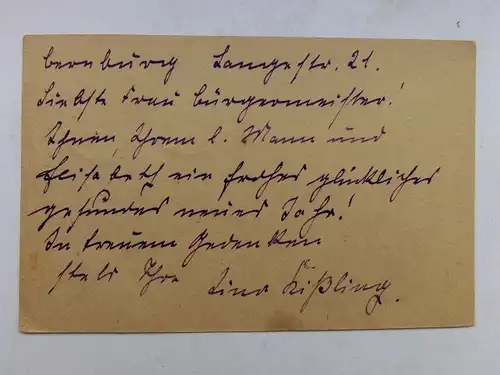 Bernburg Langestr. 21.
Liebste Frau Bürgermeister!
Ihnen, Ihrem l. Mann und
Elisabeth ein frohes glückliches
gesundes neues Jahr!
In treuem Gedenken
stets Ihre Lina Kißling.